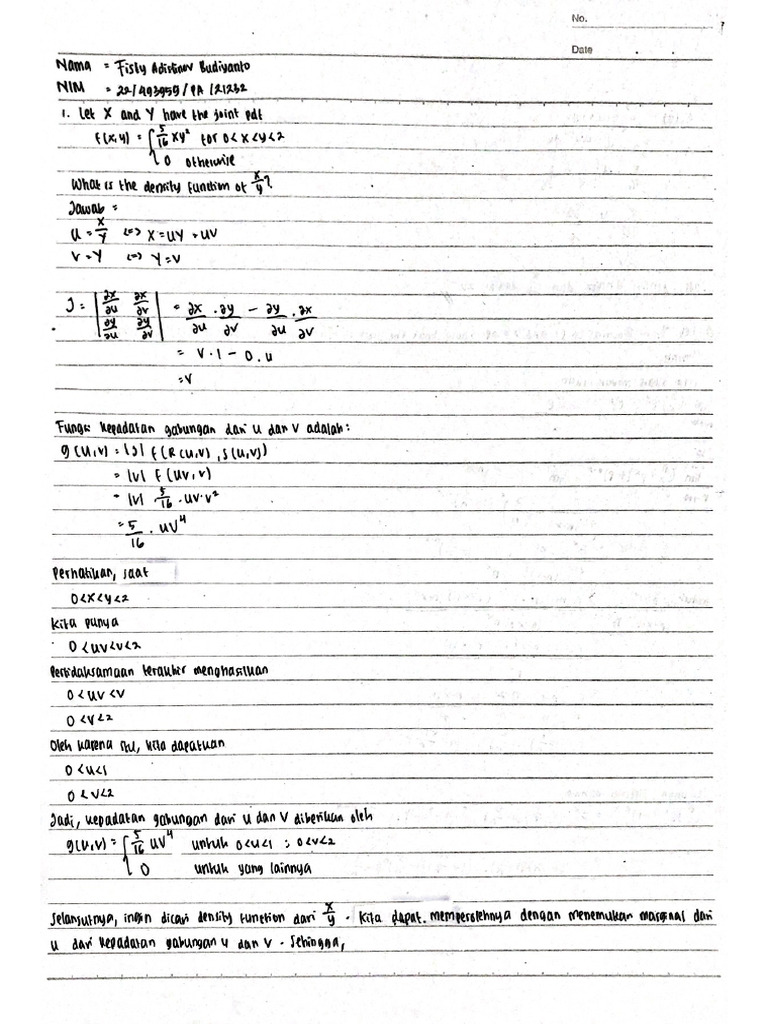 No.
Date . .
Nama = Fisly Adistinov Budiyanto
NIM = 22/493959/PA/21232
1. Let X and Y have the joint pdf
f(x,y) = { 5/16 xy² for 0<x<y<2
0 otherwise
What is the density function of x/y?
Jawab =
U = X/Y (=) X = UY = UV
V = Y (=) Y = V
J = | ∂x/∂u ∂x/∂v ; ∂y/∂u ∂y/∂v | = ∂x/∂u · ∂y/∂v − ∂y/∂u · ∂x/∂v
= v·1 − 0·u
= v
Fungsi kepadatan gabungan dari u dan v adalah:
g(u,v) = |J| f(R(u,v), S(u,v))
= |v| f(uv,v)
= |v| 5/16 · uv·v²
= 5/16 · uv⁴
Perhatikan, saat
0<x<y<2
Kita punya
0<uv<v<2
Pertidaksamaan terakhir menghasilkan
0<uv<v
0<v<2
Oleh karena itu, kita dapatkan
0<u<1
0<v<2
Jadi, kepadatan gabungan dari u dan v diberikan oleh
g(u,v) = { 5/16 uv⁴ untuk 0<u<1 ; 0<v<2
0 untuk yang lainnya
Selanjutnya, ingin dicari density function dari x/y. Kita dapat memperolehnya dengan menemukan marginal dari
u dari kepadatan gabungan u dan v. Sehingga,